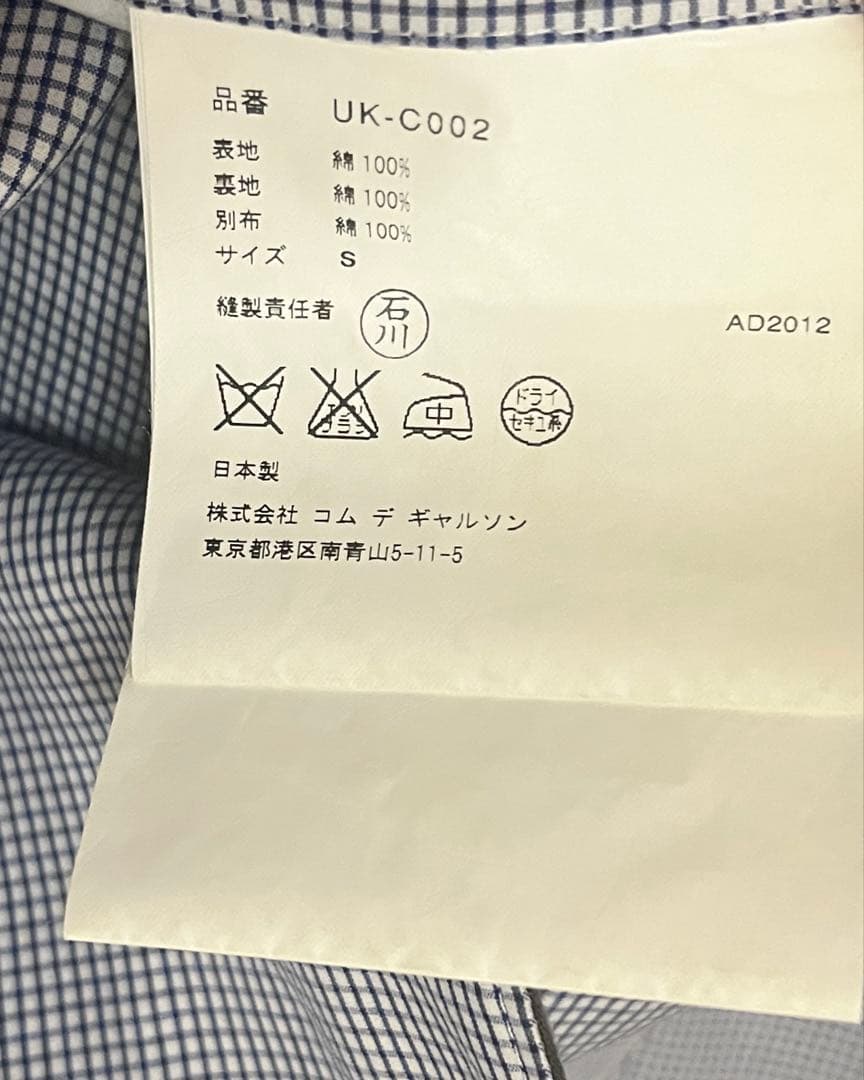 品番 UK-C002
表地 綿 100%
裏地 綿 100%
別布 綿 100%
サイズ S
縫製責任者 石川
AD2012
エンソ
サラシ
中
ドライ
セキユ系
日本製
株式会社 コム デ ギャルソン
東京都港区南青山5-11-5